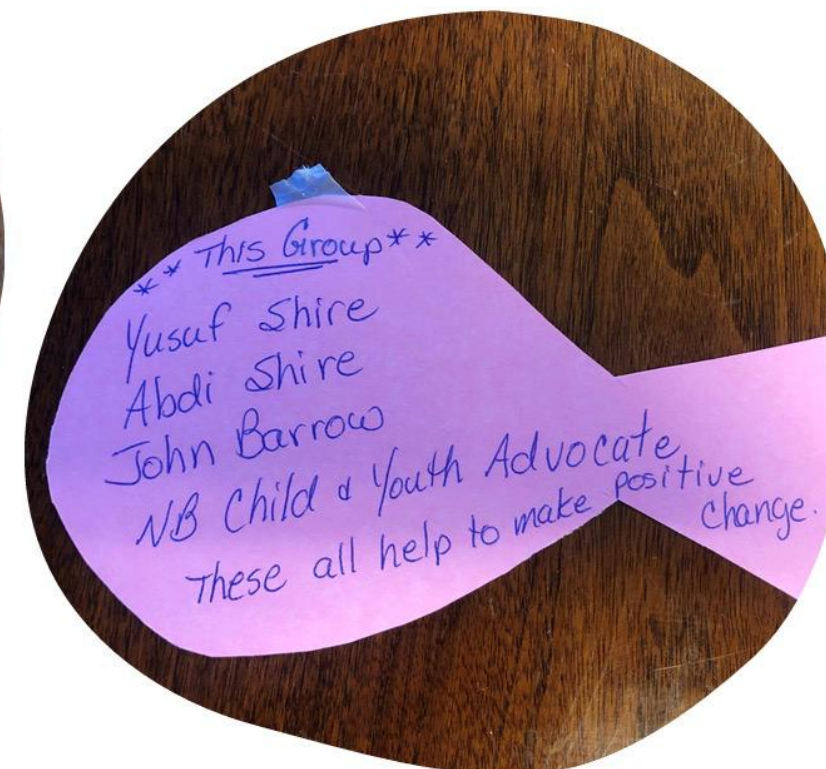 ** This Group**
Yusuf Shire
Abdi Shire
John Barrow
NB Child & Youth Advocate
These all help to make positive
change.